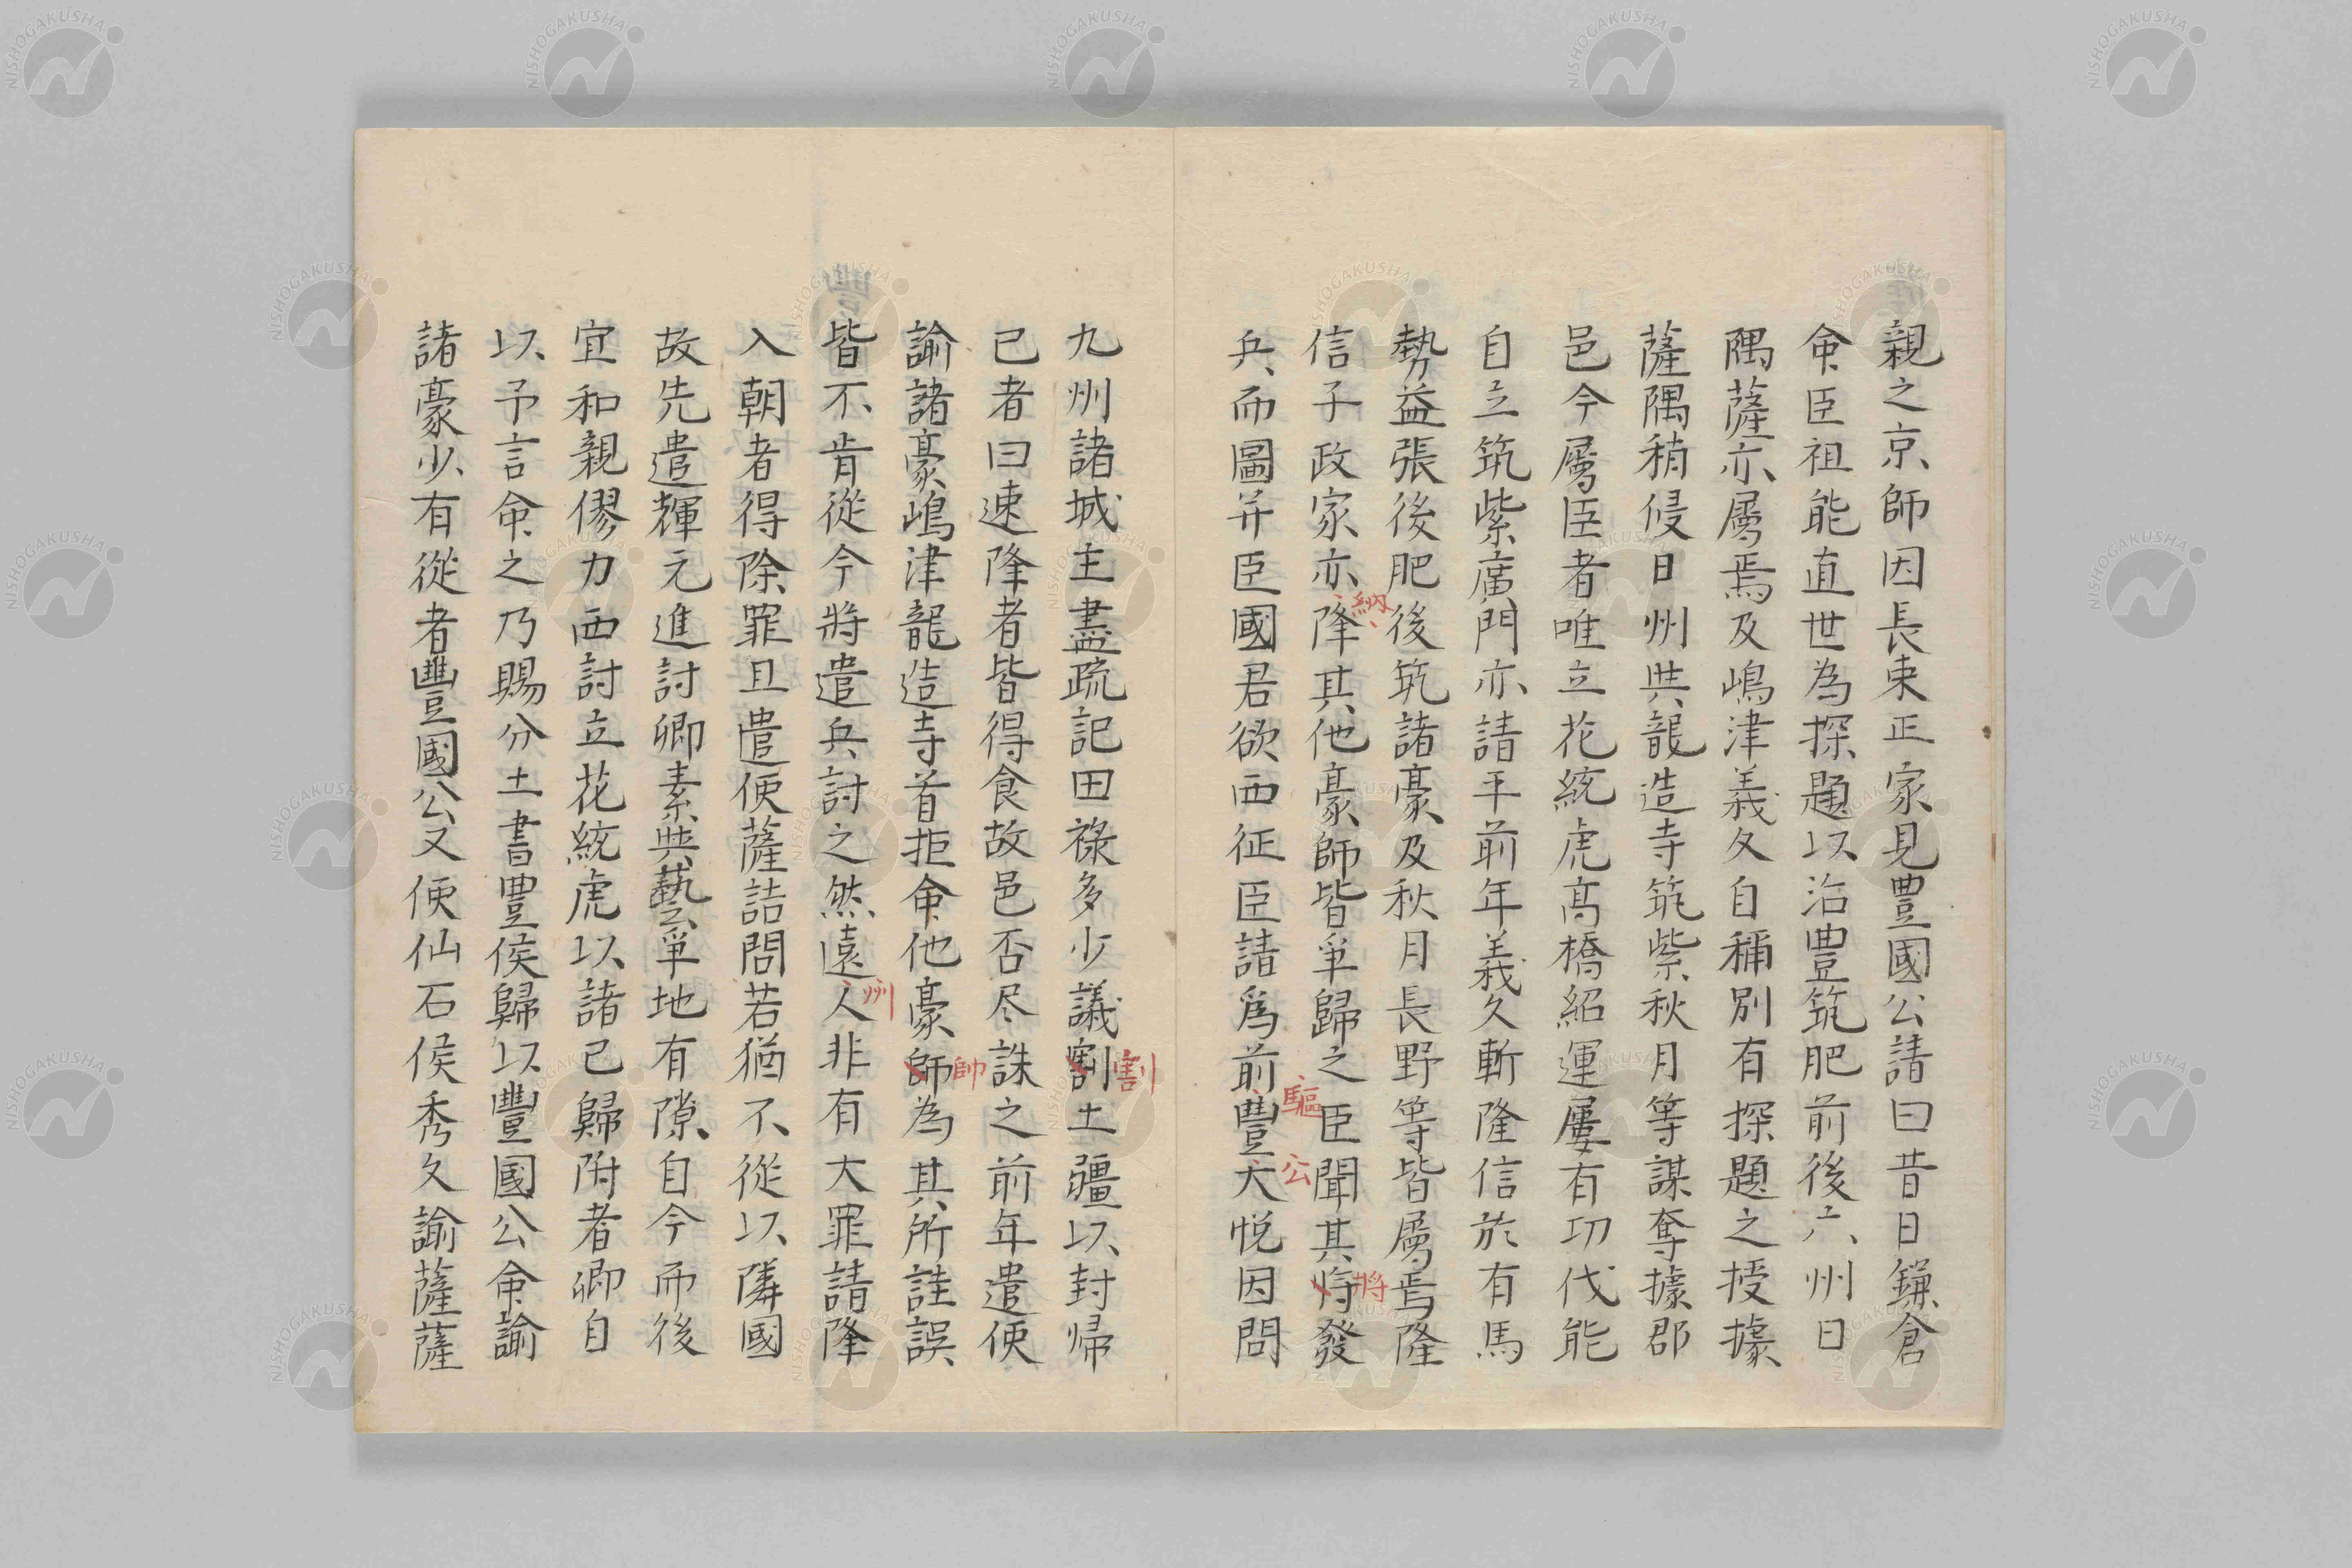 親之京師因長束正家見豊國公請曰昔日鎌倉
命臣祖能直世為探題以治豊筑肥前後六州日
隅薩亦屬焉及嶋津義久自稱別有探題之授據
薩隅稍侵日州與龍造寺筑紫秋月等謀奪據郡
邑今屬臣者唯立花統虎髙橋紹運屢有功伐能
自立筑紫廣門亦請平前年義久斬隆信於有馬
勢益張後肥後筑諸豪及秋月長野等皆屬焉隆
信子政家亦降納其他豪師皆爭歸之臣聞其将將發
兵而圖并臣國君欲西征臣請爲前驅豐大公悦因問
九州諸城主盡疏記田祿多少議割割土疆以封帰
己者曰速降者皆得食故邑否尽誅之前年遣使
諭諸豪嶋津龍造寺首拒命他豪師帥為其所詿誤
皆不肯從今將遣兵討之然遠人州非有大罪請降
入朝者得除罪且遣使薩詰問若猶不從以隣國
故先遣輝元進討卿素與藝爭地有隙自今而後
宜和親僇力西討立花統虎以諸已歸附者卿自
以予言命之乃賜分土書豊侯歸以豐國公命諭
諸豪少有從者豐國公又使仙石侯秀久諭薩薩
NISHOGAKUSHA